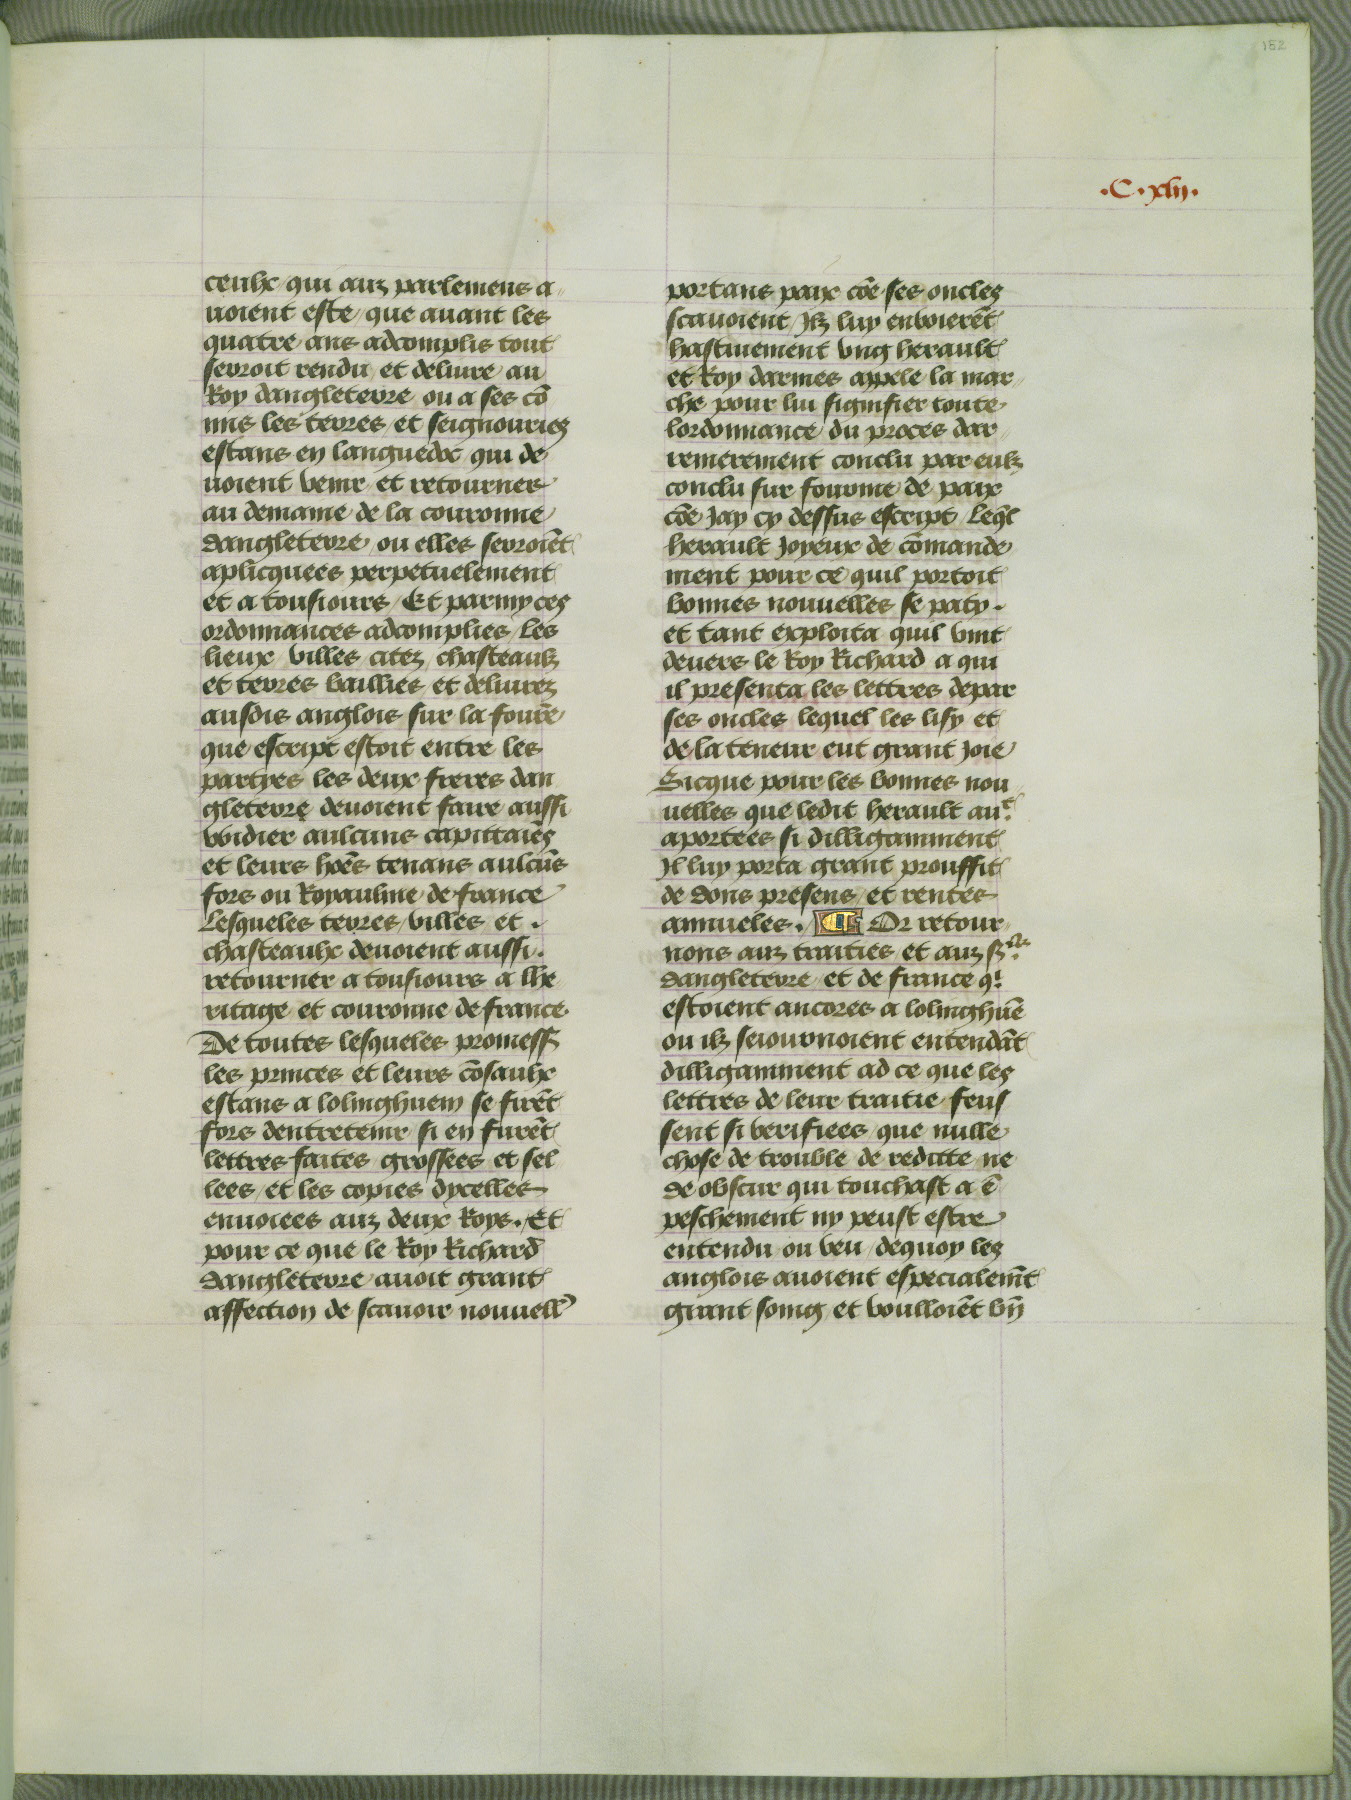 152
.C.xlij.
ceulx qui aux parlemens a
uoient este / que auant les
quatre ans adcomplis tout
seroit rendu et deliure au
Roy dangleterre ou a ses cō
mis les terres et seignouries
estans en languedoc qui de
uoient venir et retourner
au demaine de la couronne
dangleterre / ou elles seroiēt
aplicquees perpetuelement
et a tousiours / Et parmy ces
ordonnances adcomplies / Les
lieux villes citez chasteaulz
et terres baillies et deliurez
ausdis anglois sur la fourē
que escript estoit entre les
partyes les deux freres dan
gleterre deuoient faire aussi
voidier aulcuns capittaiēs
et leurs hoēs tenans aulcūs
fors ou Royaulme de france
Lesqueles terres / villes et .
chasteaulx deuoient aussi .
retourner a tousiours a lhe
ritage et couronne de france.
De toutes lesqueles promess
les princes et leurs cōsaulx
estans a lolinghuem se firēt
fors dentretenir si en furēt
lettres faites grossees et sel
lees / et les copies dycelles
enuoiees aux deux Roys . Et
pour ce que le Roy Richard
dangleterre auoit grant
affection de scauoir nouuell
portans paix cōe ses oncles
scauoient / Ilz luy enuoierēt
hastiuement vng herault
et Roy darmes appele la mar
che pour lui signifier toute
lordonnance du proces dar
renierement conclu par eulz
conclu sur fourme de paix
cōe Jay cy dessus escript Leql
herault Joyeux de cōmande
ment pour ce quil portoit
bonnes nouuelles se party .
et tant exploita quil vint
deuers le Roy Richard a qui
il presenta les lettres depar
ses oncles lequel les lisy et
de la teneur eut grant Joie
Sicque pour les bonnes nou
uelles que ledit herault aut
aportees si dilligamment
Il luy porta grant prouffit
de dons presens / et rentes
annueles . Or retour
nons aux traities et aux srs
dangleterre et de france qi
estoient ancores a lolinghuē
ou ilz seiournoient entendāt
dilligamment ad ce que les
lettres de leur traitie feus
sent si verifiees que nulle
chose de trouble de reditte ne
de obscur qui touchast a ē
peschement ny peust estre
entendu ou veu / dequoy les
anglois auoient especialemt̄
grant soing et voulloiēt vn̄